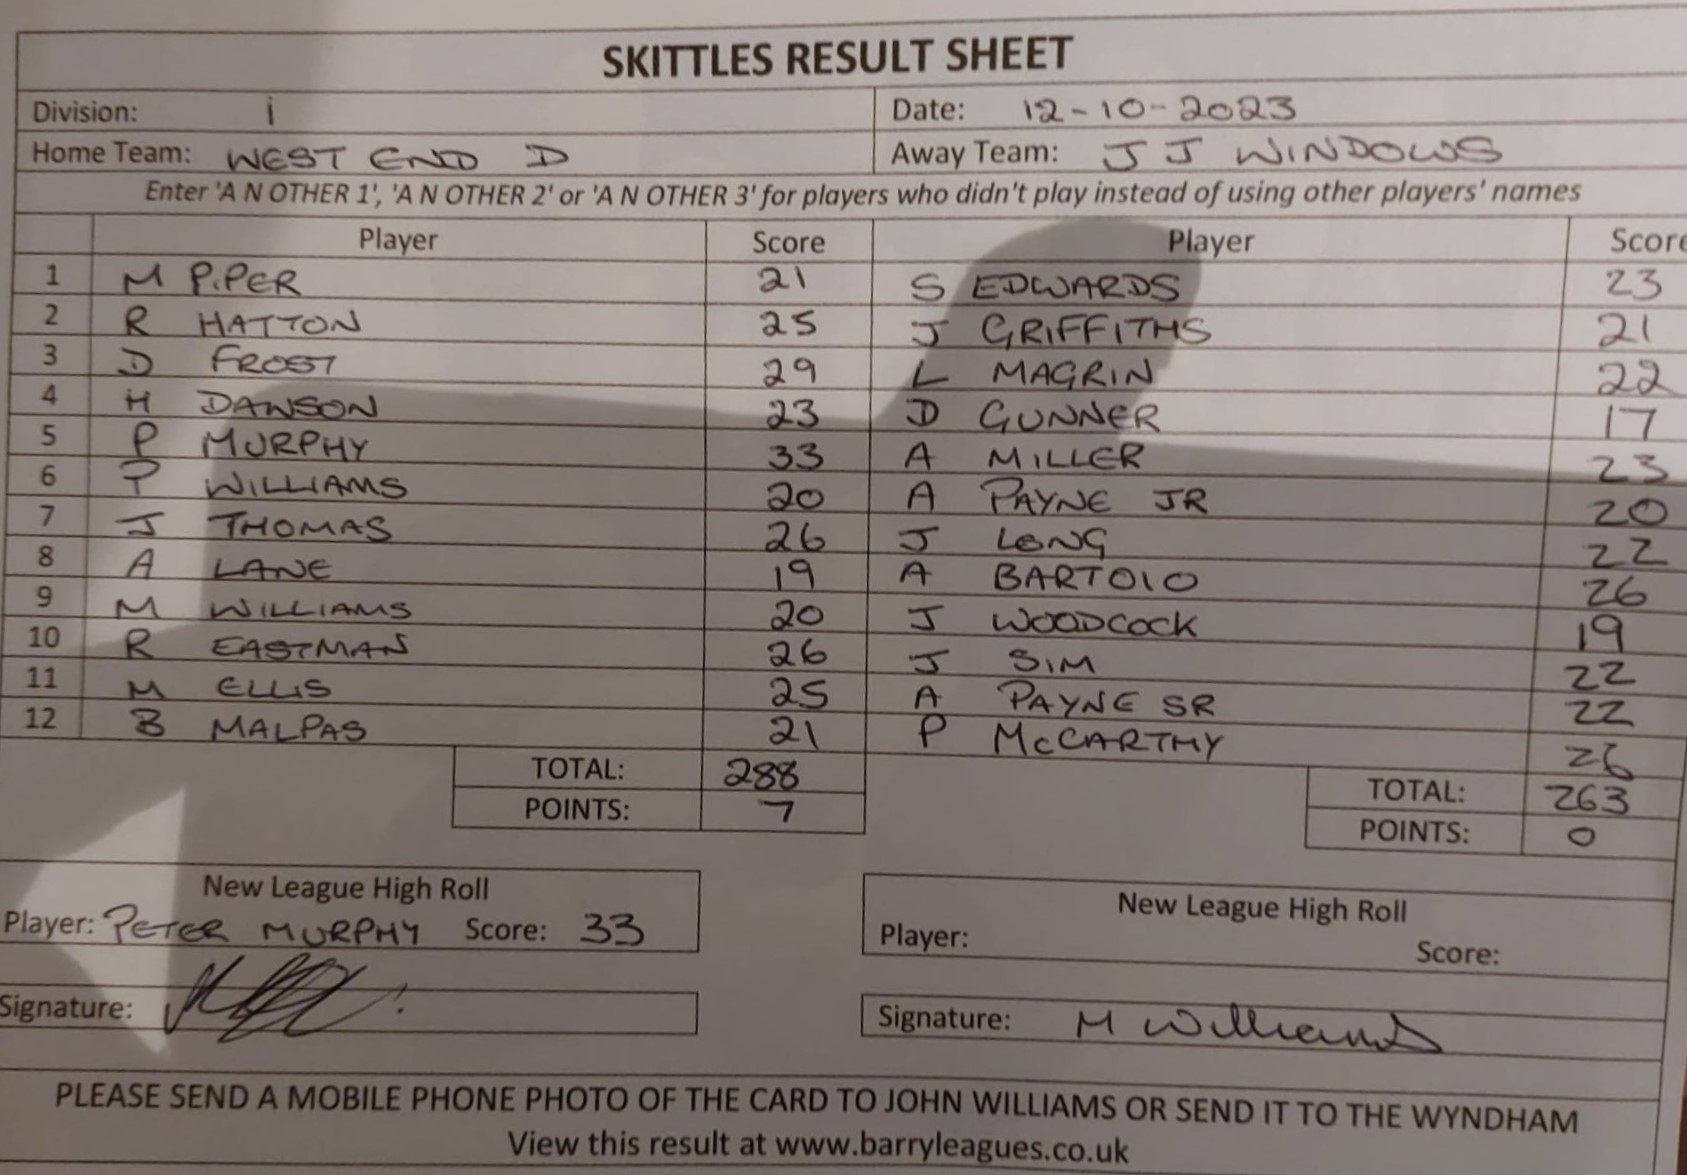 SKITTLES RESULT SHEET
Division: i Date: 12-10-2023
Home Team: WEST END D Away Team: J J WINDOWS
Enter 'A N OTHER 1', 'A N OTHER 2' or 'A N OTHER 3' for players who didn't play instead of using other players' names
Player Score Player Score
1 M PIPER 21 S EDWARDS 23
2 R HATTON 25 J GRIFFITHS 21
3 D FROST 29 L MAGRIN 22
4 H DAWSON 23 D GUNNER 17
5 P MURPHY 33 A MILLER 23
6 P WILLIAMS 20 A PAYNE JR 20
7 J THOMAS 26 J LONG 22
8 A LANE 19 A BARTOLO 26
9 M WILLIAMS 20 J WOODCOCK 19
10 R EASTMAN 26 J SIM 22
11 M ELLIS 25 A PAYNE SR 22
12 B MALPAS 21 P McCARTHY 26
TOTAL: 288 TOTAL: 263
POINTS: 7 POINTS: 0
New League High Roll New League High Roll
Player: PETER MURPHY Score: 33 Player: Score:
Signature: Signature: M Williams
PLEASE SEND A MOBILE PHONE PHOTO OF THE CARD TO JOHN WILLIAMS OR SEND IT TO THE WYNDHAM
View this result at www.barryleagues.co.uk